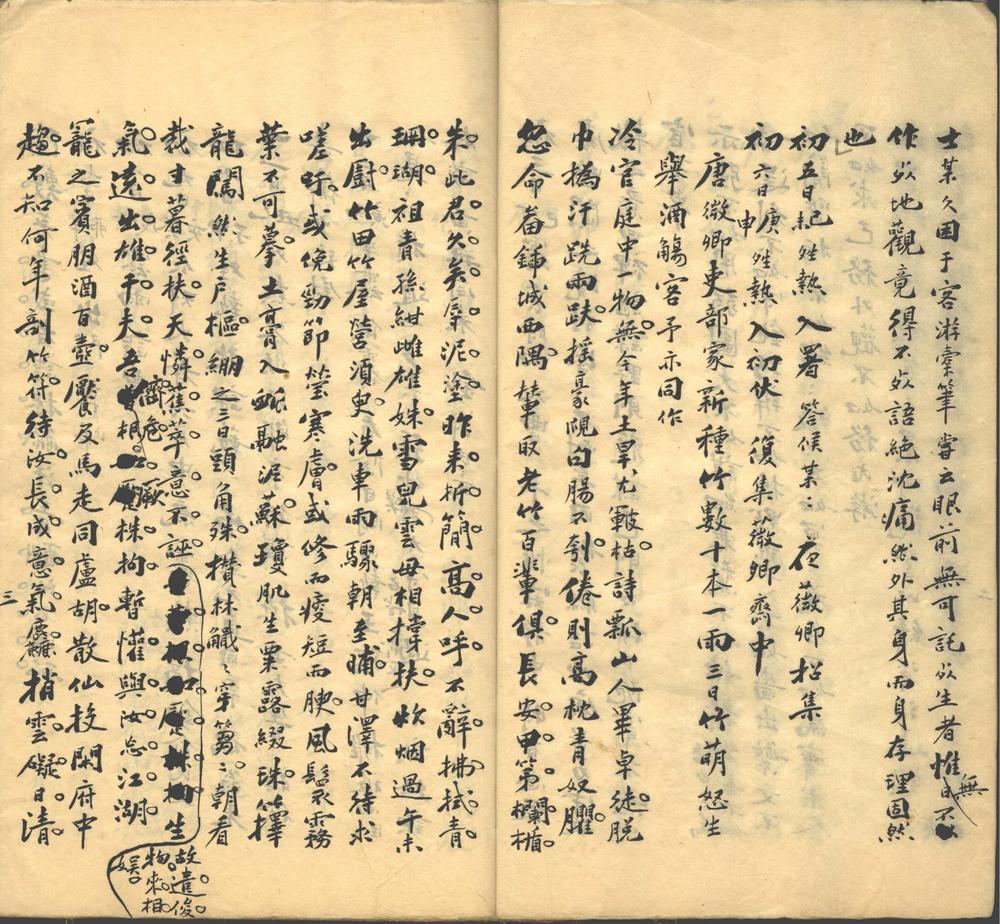 士某久困于客游橐筆嘗云眼前無可託以生者惟無
作如此地觀竟得不如此語絕沈痛然外其身而身存理固然
也
初五日己未熱入署答候某某夜薇卿招集
初六日庚申熱入初伏復集薇卿齋中
唐薇卿吏部家新種竹數十本一雨三日竹萌怒生
舉酒觴客予亦同作
冷官庭中一物無今年土旱尤皸枯詩瓢山人畢卓徒脫
巾撝汗跣兩趺搖豪覗白腸不刳倦則高枕青奴臞
忽命畚鍤城西隅輦取老竹百輩俱長安甲第欄楯
朱此君久矣辱泥塗昨來折簡高人呼不辭拂拭青
珊瑚祖青孫紺雌雄姝雪兒雲母相撐扶炊烟過午未
出廚竹田竹屋營須臾洗車雨驟朝至晡甘澤不待求
嗟吁或俛勁節瑩寒膚或修而瘦短而腴風鬟霧
葉不可摹土膏入脈融泥蘇瓊肌生粟露綴珠籜
龍闖然生戶樞繃之三日頭角殊攢林觺觺穿芻芻朝看
栽寸暮徑扶天憐蕉萃意不誣生
氣遠出雄千夫吾儕危厥株拘暫懽與汝忘江湖
寵之賓朋酒百壺饜及馬走同盧胡散仙投閑府中
趨不知何年剖符符待汝長成意氣麤梢雲礙日清
故遣俊
物來相
娛
三